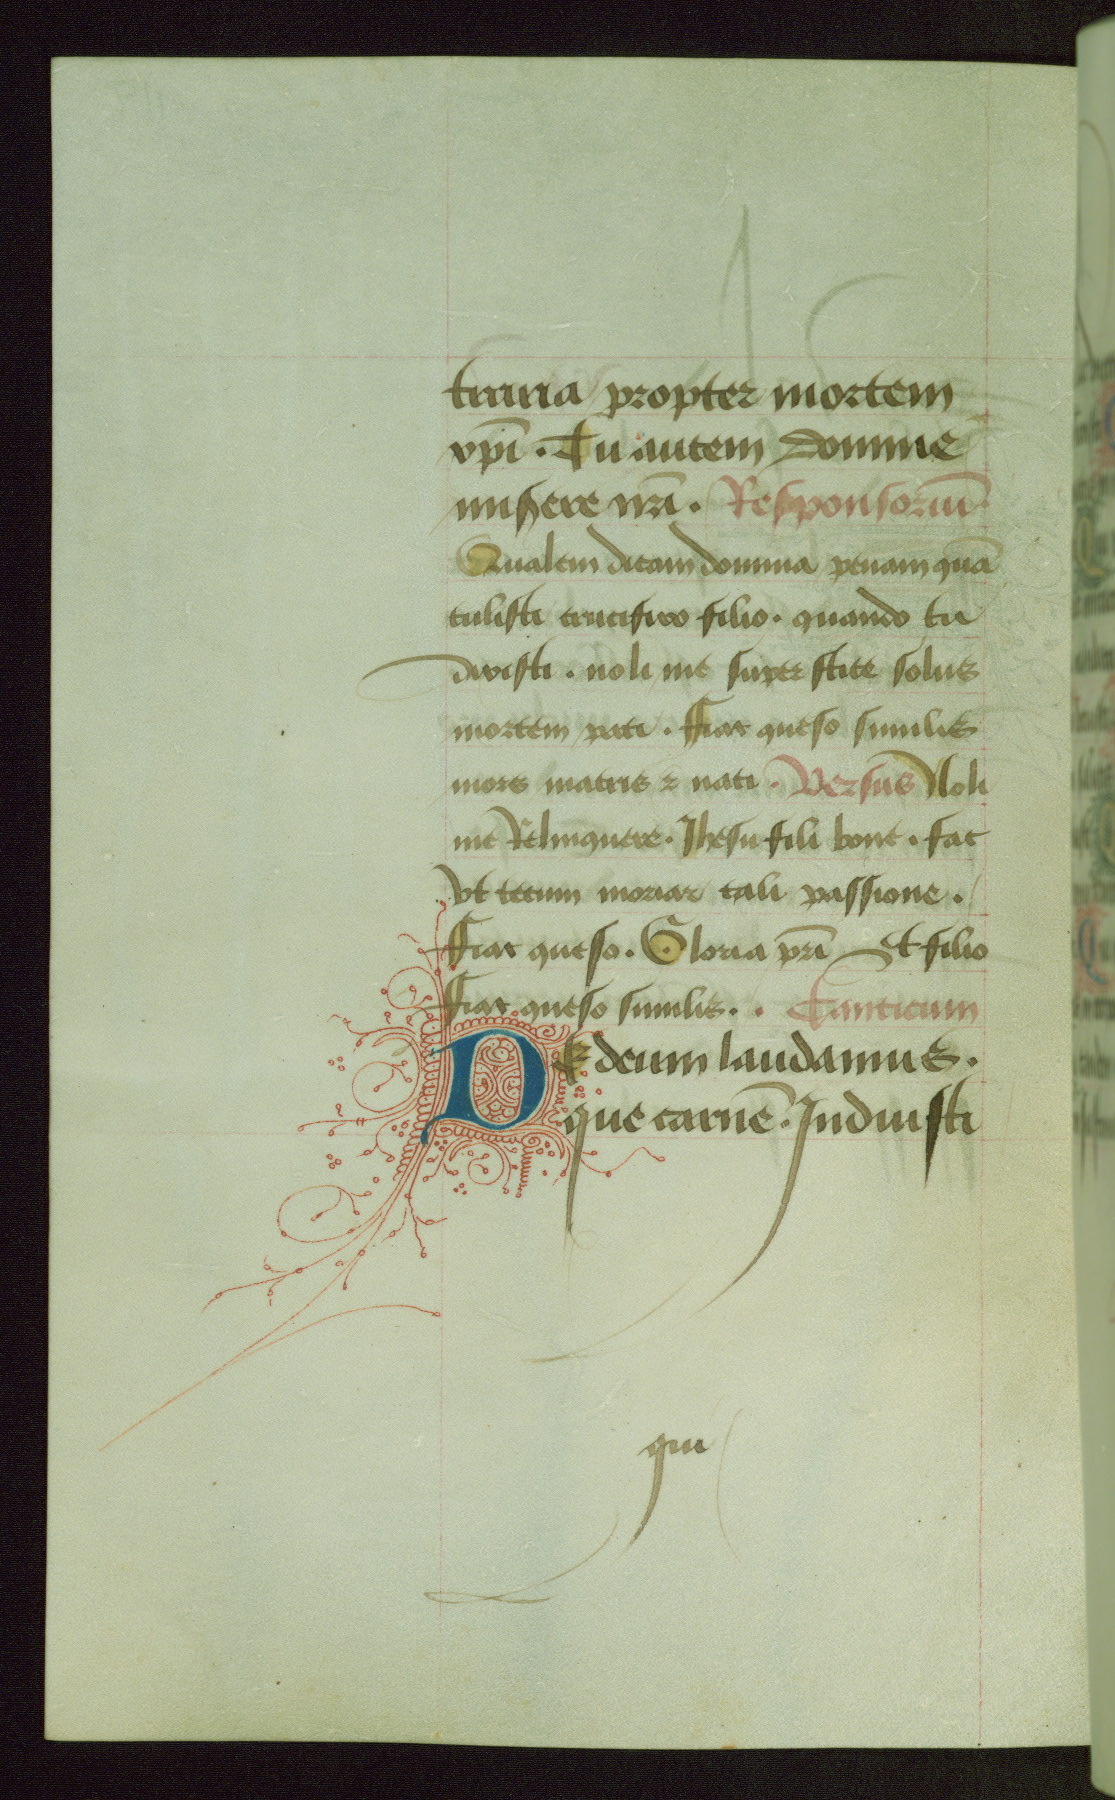 traria propter mortem
xpi̅. Tu autem Domine
misere nr̅i. Responsoriu̅
Qualem dicam domina penam qua̅
tulisti crucifixo filio. quando tu
dixisti. noli me superstite solus
mortem pati. Fiat queso similis
mors matris ⁊ nati. Versus Noli
me Relinquere. Jhesu fili bone. fac
vt tecum moriar tali passione.
Fiat queso. Gloria pr̅i Et filio
Fiat queso similis. Canticum
DE deum laudamus.
que carne̅. Induisti
qui